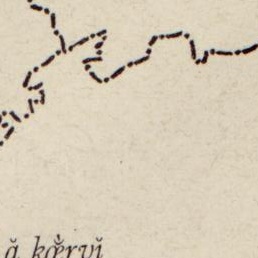 ă kœ̆̀rvĭ